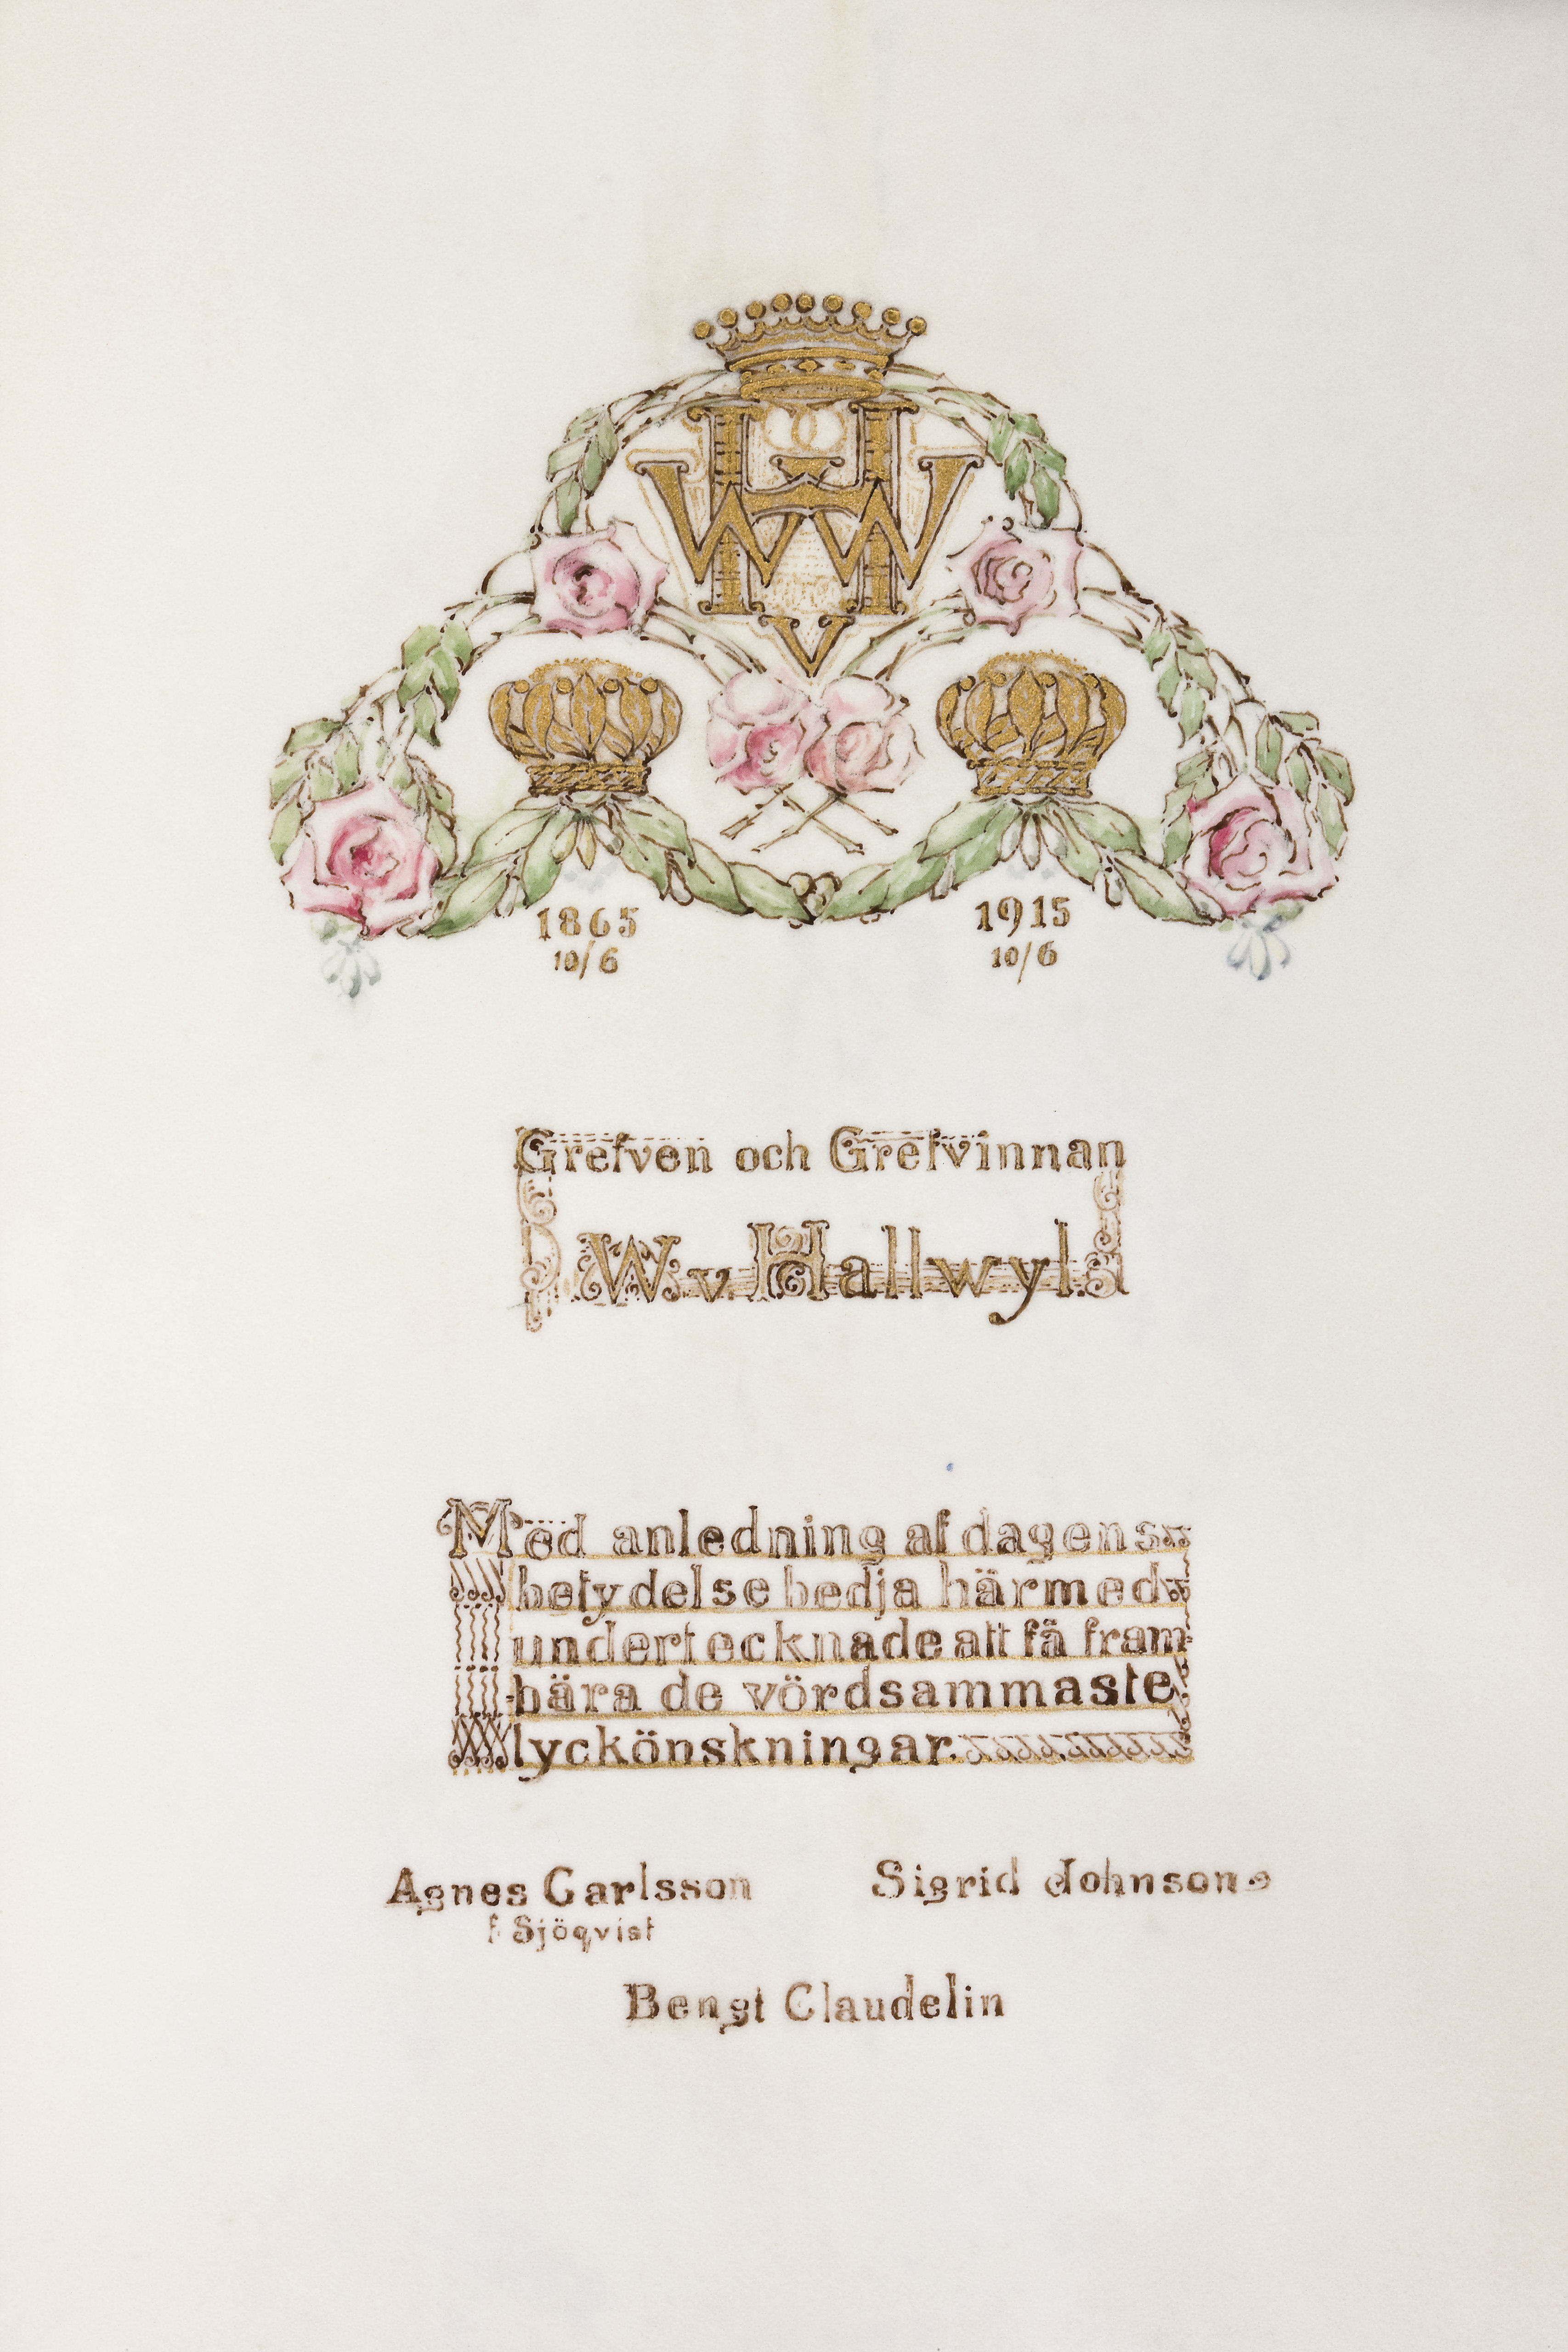 W H W
v
1865
10/6
1915
10/6
Grefven och Grefvinnan
W. v. Hallwyl.
Med anledning af dagens
betydelse bedja härmed
undertecknade att få fram-
bära de vördsammaste
lyckönskningar.
Agnes Carlsson
f. Sjöqvist
Sigrid Johnson
Bengt Claudelin